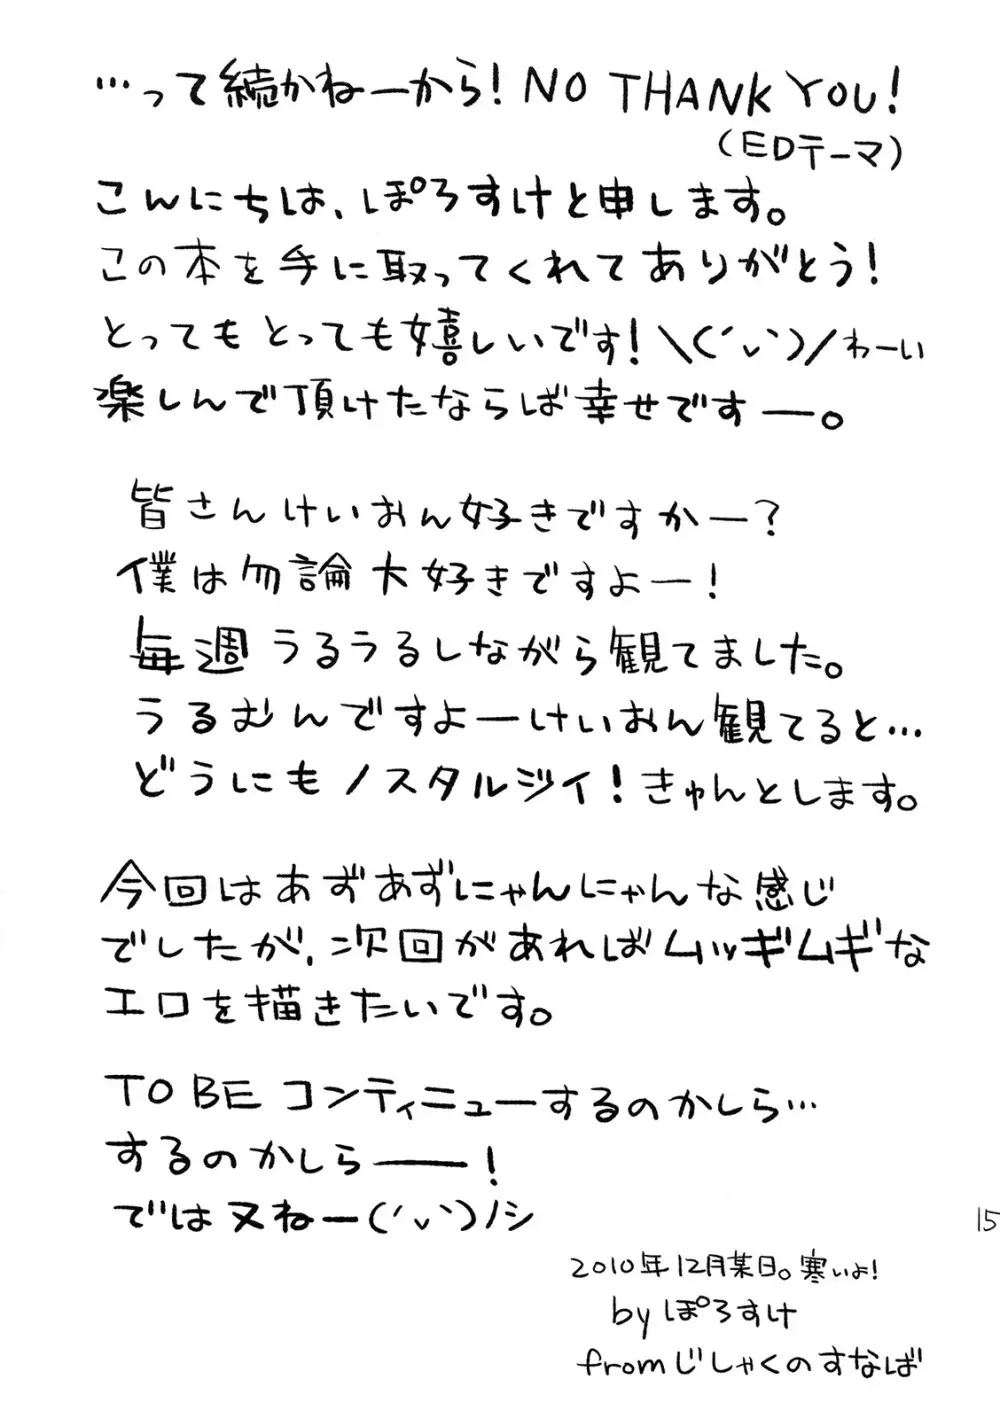 …って続かねーから!NO THANK YOU!
(EDテーマ)
こんにちは、ぽろすけと申します。
この本を手に取ってくれてありがとう!
とってもとっても嬉しいです!＼(´ヽ`)／わーい
楽しんで頂けたならば幸せですー。
皆さんけいおん好きですかー?
僕は勿論大好きですよー!
毎週うるうるしながら観てました。
うるむんですよーけいおん観てると…
どうにもノスタルジイ!きゅんとします。
今回はあずあずにゃんにゃんな感じ
でしたが、次回があればムッギムギな
エロを描きたいです。
TO BE コンティニューするのかしら…
するのかしらー!
では又ねー(´ヽ`)ノシ
15
2010年12月某日。寒いよ!
by ぽろすけ
from じしゃくのすなば